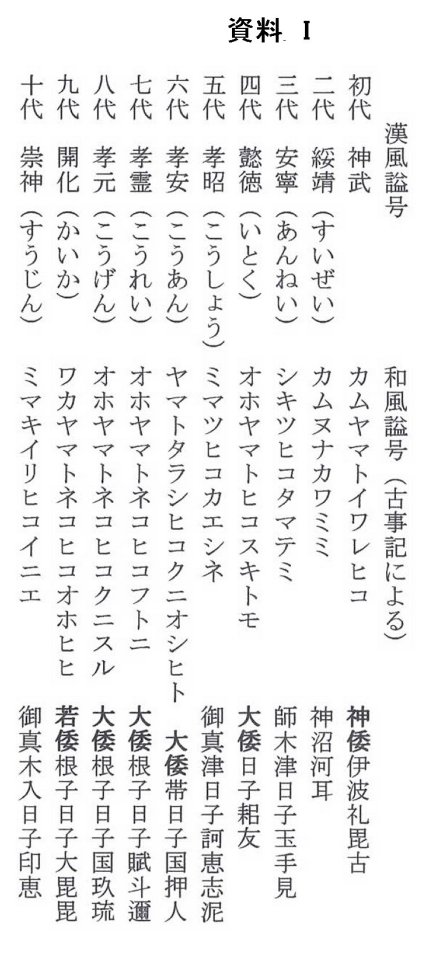 資料 I
漢風諡号 和風諡号（古事記による）
初代 神武 カムヤマトイワレヒコ 神倭伊波礼毘古
二代 綏靖（すいぜい） カムヌナカワミミ 神沼河耳
三代 安寧（あんねい） シキツヒコタマテミ 師木津日子玉手見
四代 懿徳（いとく） オホヤマトヒコスキトモ 大倭日子耜友
五代 孝昭（こうしょう） ミマツヒコカエシネ 御真津日子訶恵志泥
六代 孝安（こうあん） ヤマトタラシヒコクニオシヒト 大倭帯日子国押人
七代 孝霊（こうれい） オホヤマトネコヒコフトニ 大倭根子日子賦斗邇
八代 孝元（こうげん） オホヤマトネコヒコクニスル 大倭根子日子国玖琉
九代 開化（かいか） ワカヤマトネコヒコオホヒヒ 若倭根子日子大毘毘
十代 崇神（すうじん） ミマキイリヒコイニエ 御真木入日子印恵